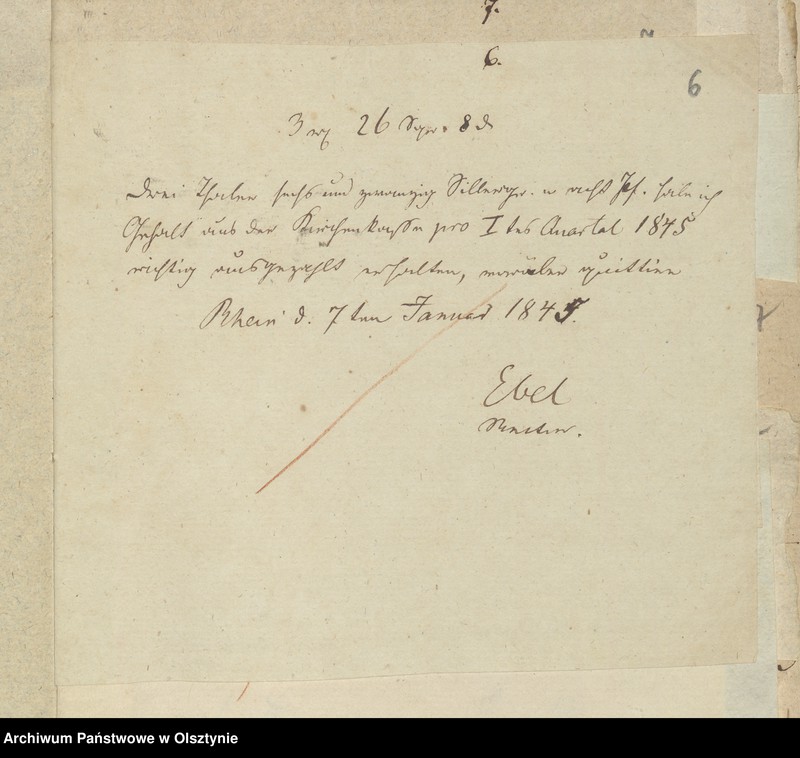 7.
6.
6
3 rℓ 26 Sgr. 8 d
Drei Thaler sechs und zwanzig Silbergr. u acht Pf. habe ich
Gehalt aus der Kirchenkasse pro I tes Quartal 1845
richtig ausgezahlt erhalten, worüber quittire
Rhein d. 7ten Januar 1845.
Ebel
Rector.
Archiwum Państwowe w Olsztynie